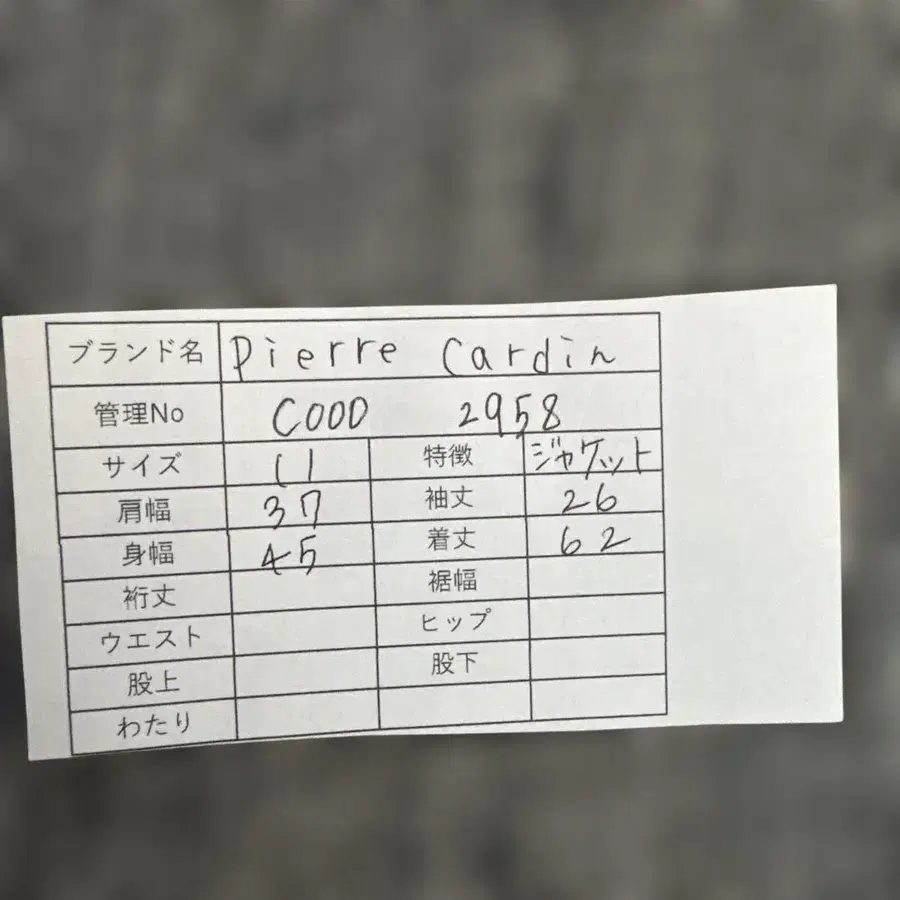 ブランド名 Pierre Cardin
管理No COOD 2958
サイズ 11 特徴 ジャケット
肩幅 37 袖丈 26
身幅 45 着丈 62
裄丈 裾幅
ウエスト ヒップ
股上 股下
わたり